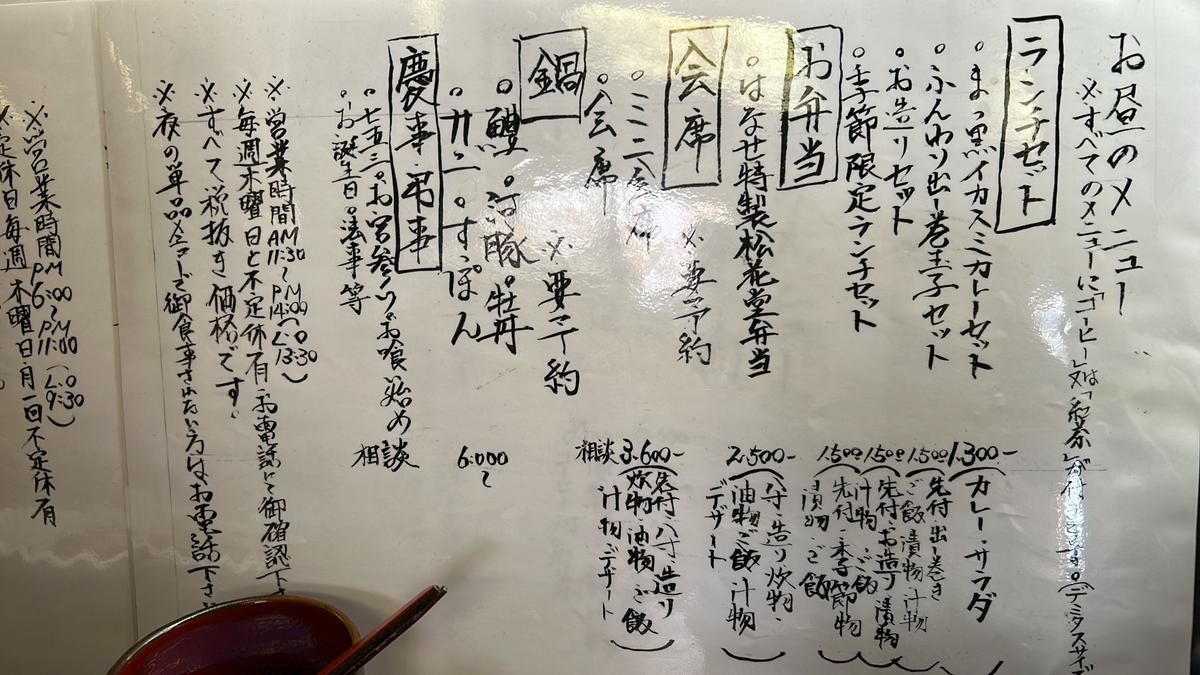 お昼のメニュー
※すべてのメニューに「コーヒー」又は「紅茶」が付きます。(デミタスサイズ
ランチセット
。まっ黒イカスミカレーセット 1.300-(カレー・サラダ)
。ふんわり出し巻玉子セット 1.500(先付・出し巻き ご飯・漬物・汁物)
。お造りセット 1.500(先付・お造り・漬物 汁物・ご飯)
。季節限定ランチセット 1.500(先付・季節物 漬物・ご飯)
お弁当
。はなせ特製松花堂弁当 2.500-(八寸・造り・炊物・油物・ご飯・汁物 デザート)
会席 ※要予約
。ミニ会席 3.600-(先付・八寸・造り 炊物・油物・ご飯 汁物・デザート)
。会席 相談
鍋 ※要予約
。鱧 。河豚 。牡丹
。カニ 。すっぽん 6.000〜
慶事・弔事
。七五三。お宮参り。お喰い始め
。お誕生日。法事等 相談
※営業時間 AM11:30〜PM14:00(L.O 13:30)
※毎週木曜日と不定休有。お電話にて御確認下さ
※すべて税抜き価格です。
※夜の単品メニューで御食事されたい方はお電話下さい
※営業時間 PM6:00〜PM11:00(L.O 9:30)
定休日毎週木曜日月一回不定休有